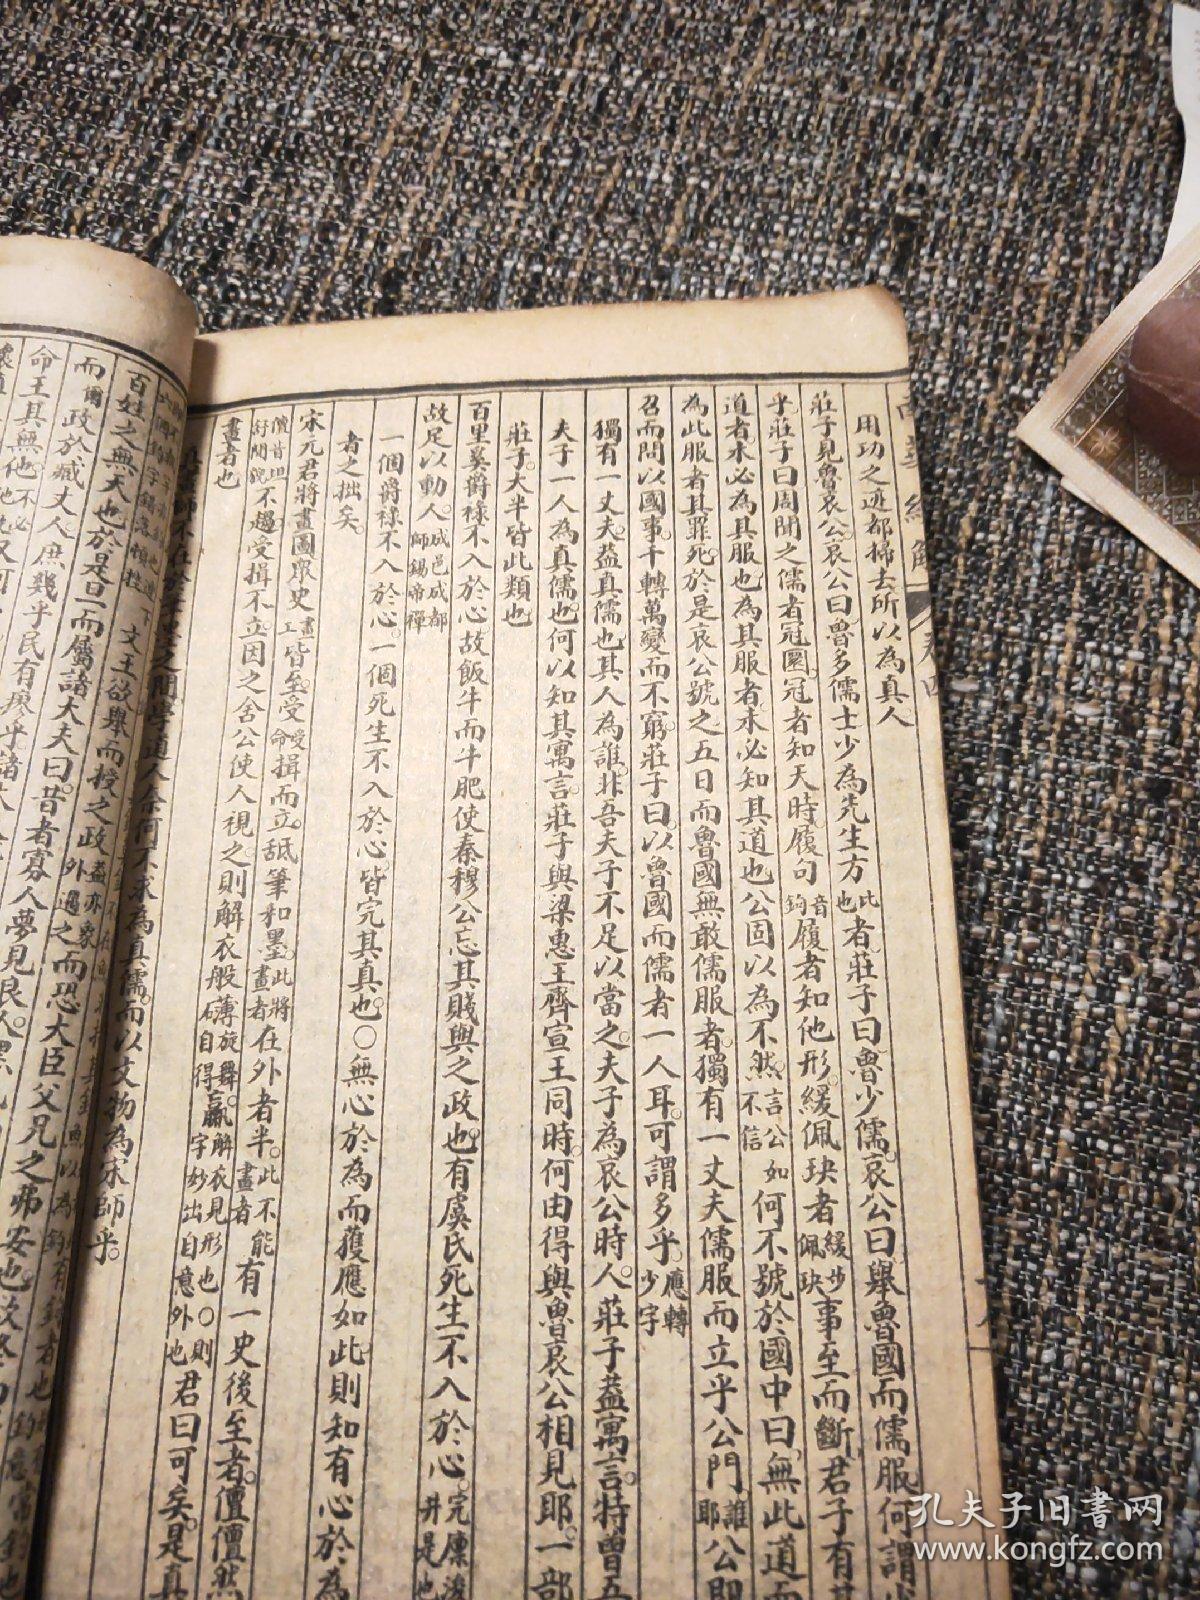 南華經解 卷四
用功之迹都掃去所以為真人
莊子見魯哀公哀公曰魯多儒士少為先生方此也者莊子曰魯少儒哀公曰舉魯國而儒服何謂少
乎莊子曰周聞之儒者冠圜冠者知天時履句音鉤屨者知他形緩佩玦者緩步佩玦事至而斷君子有其
道者未必為其服也為其服者未必知其道也公固以為不然言公不信如何不號於國中曰無此道而
為此服者其罪死於是哀公號之五日而魯國無敢儒服者獨有一丈夫儒服而立乎公門誰耶公即
召而問以國事千轉萬變而不窮莊子曰以魯國而儒者一人耳可謂多乎應轉少字
獨有一丈夫蓋真儒也其人為誰非吾夫子不足以當之夫子為哀公時人莊子蓋寓言特曾吾
夫子一人為真儒也何以知其寓言莊子與梁惠王齊宣王同時何由得與魯哀公相見耶一部
莊子大半皆此類也
百里奚爵祿不入於心故飯牛而牛肥使秦穆公忘其賤與之政也有虞氏死生不入於心完廩浚井是也
故足以動人成邑成都師錫帝禪
一個爵祿不入於心一個死生不入於心皆完其真也○無心於為而獲應如此則知有心於為
者之拙矣
宋元君將畫圖眾史畫工皆至受受命揖而立舐筆和墨此將畫者在外者半此不能畫者有一史後至者儃儃然
儃音坦舒閒貌不趨受揖不立因之舍公使人視之則解衣般礴旋舞自得臝解衣見形也○則字妙出自意外也君曰可矣是真
畫者也
之間學道人奈何不求為真儒而以文物為宗師乎
百姓之無天也於是旦而屬諸大夫曰昔者寡人夢見良人
而爾政於臧丈人庶幾乎民有瘳乎諸大
文王欲舉而授之政而恐大臣父兄之弗安也欲終
命王其無他
孔夫子旧书网
www.kongfz.com